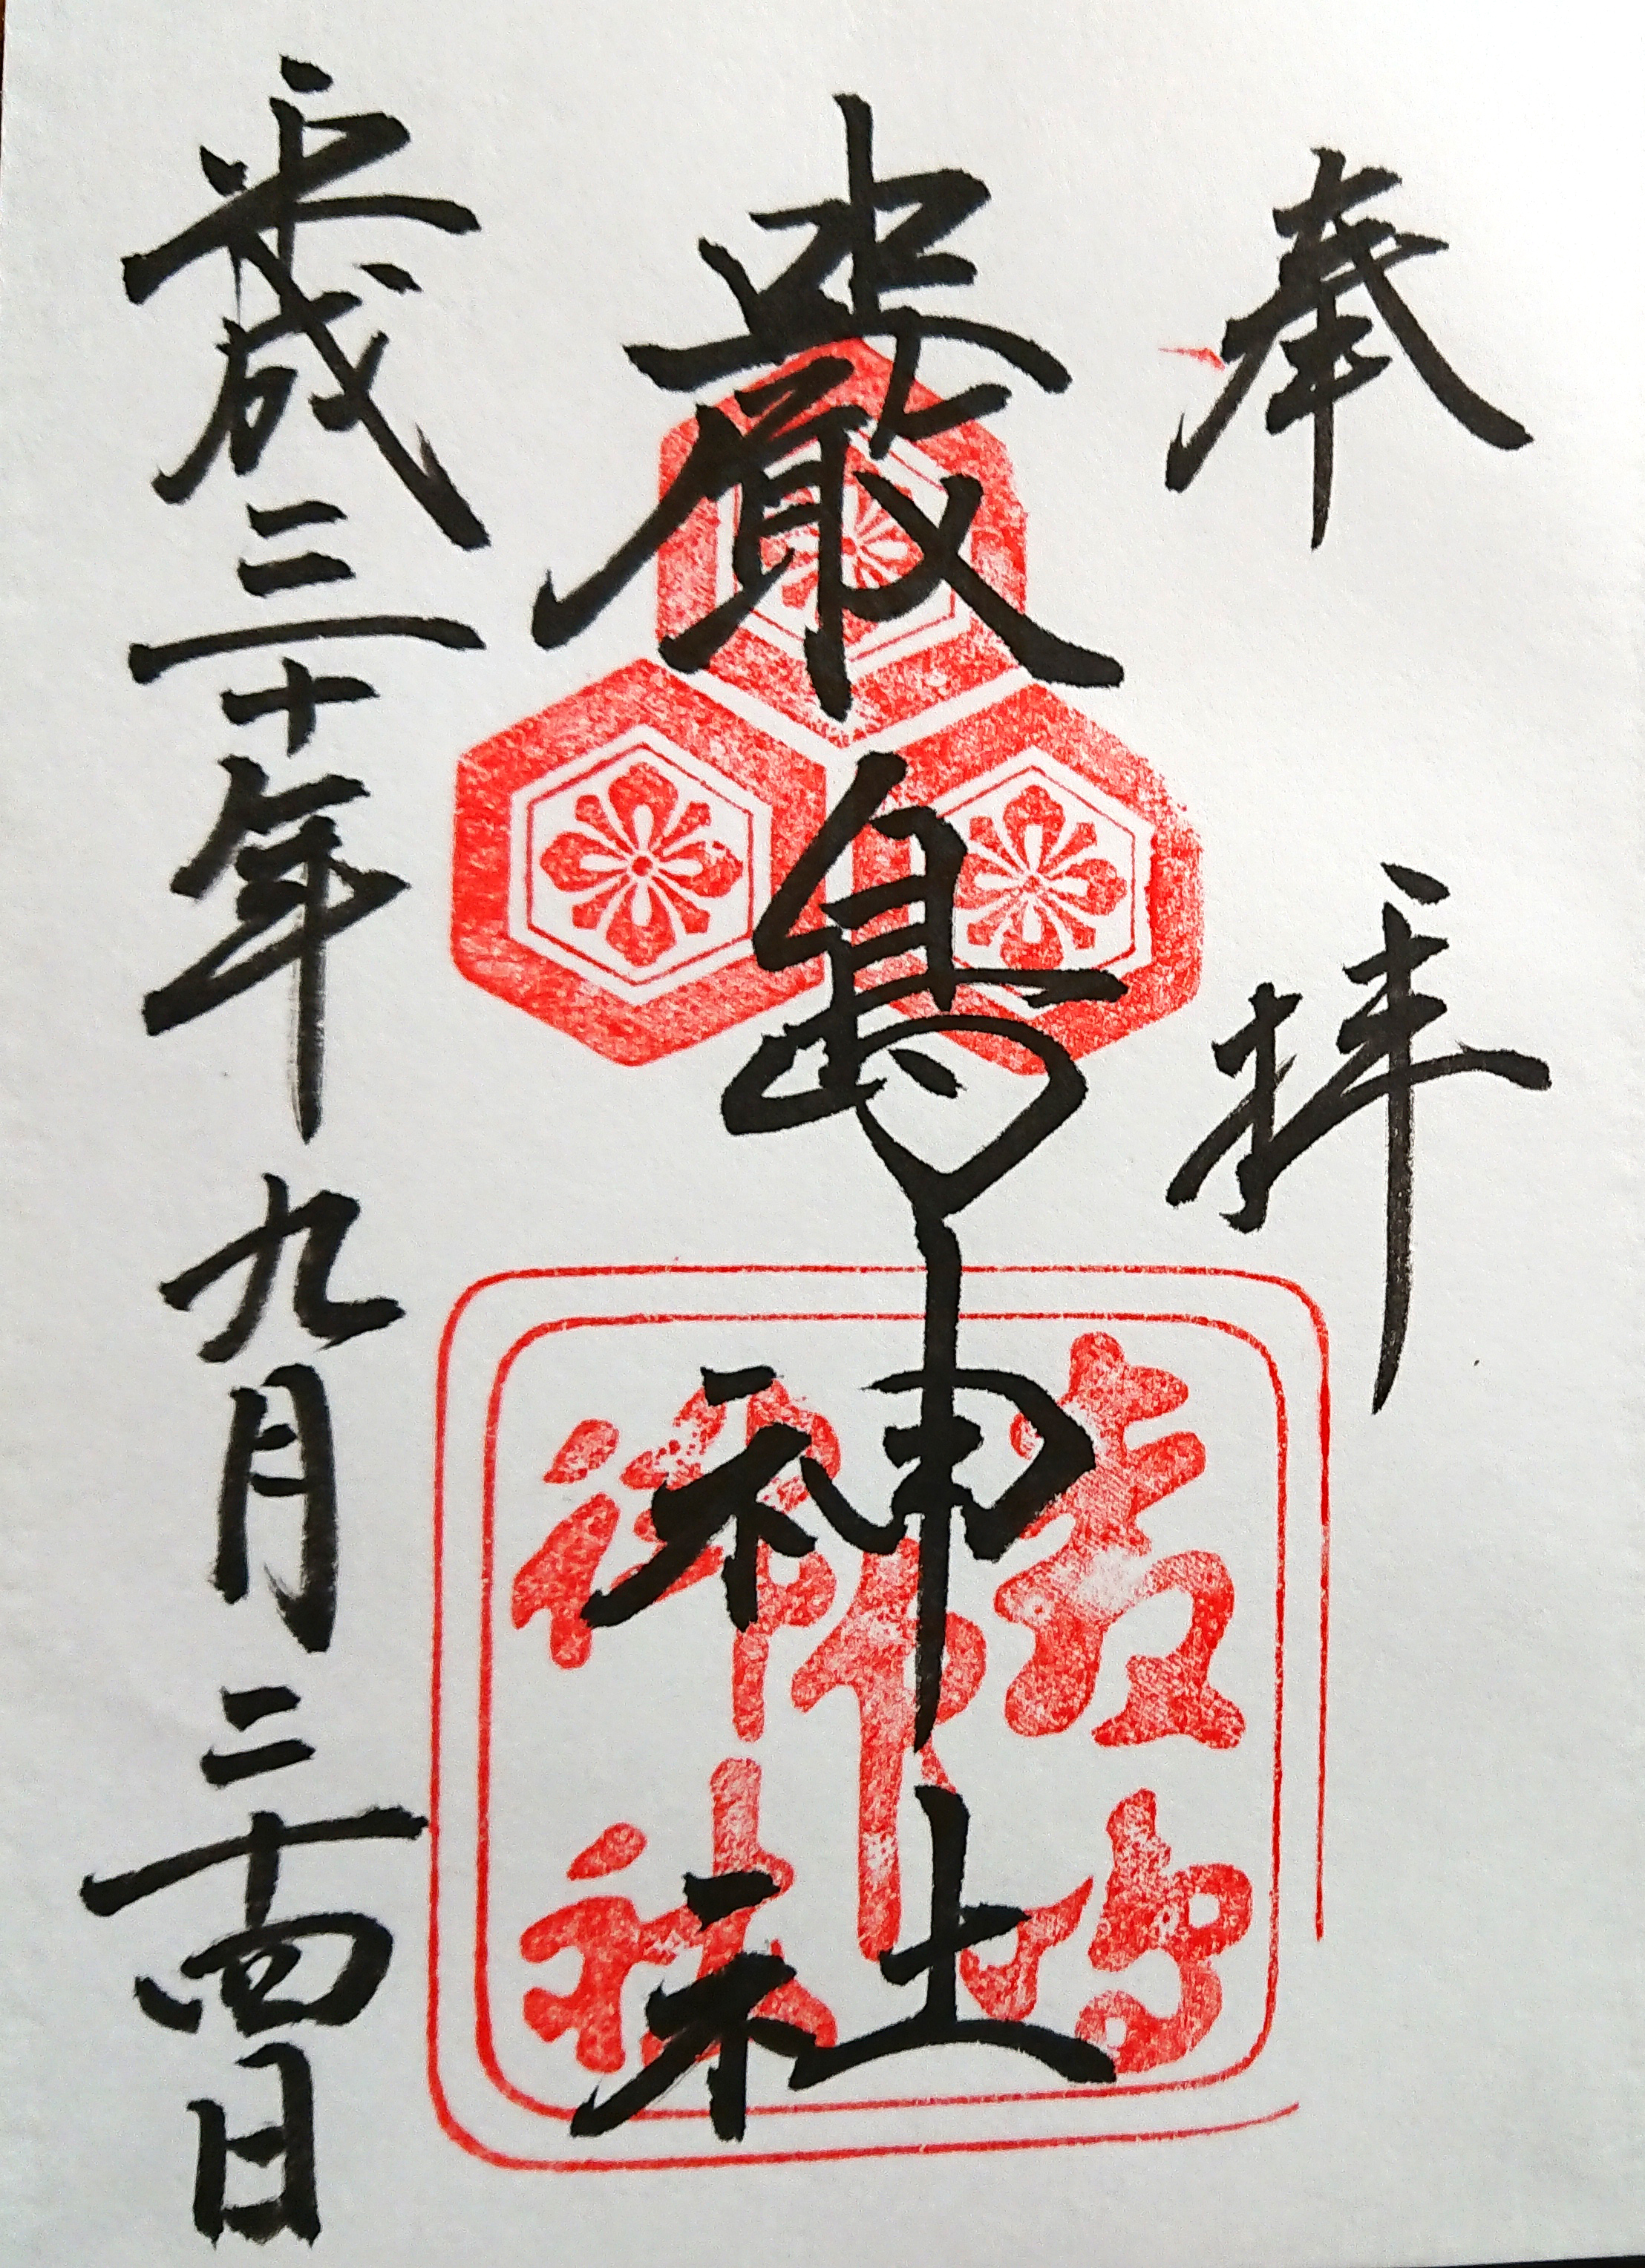 奉拝
嚴島神社
平成三十年九月二十四日